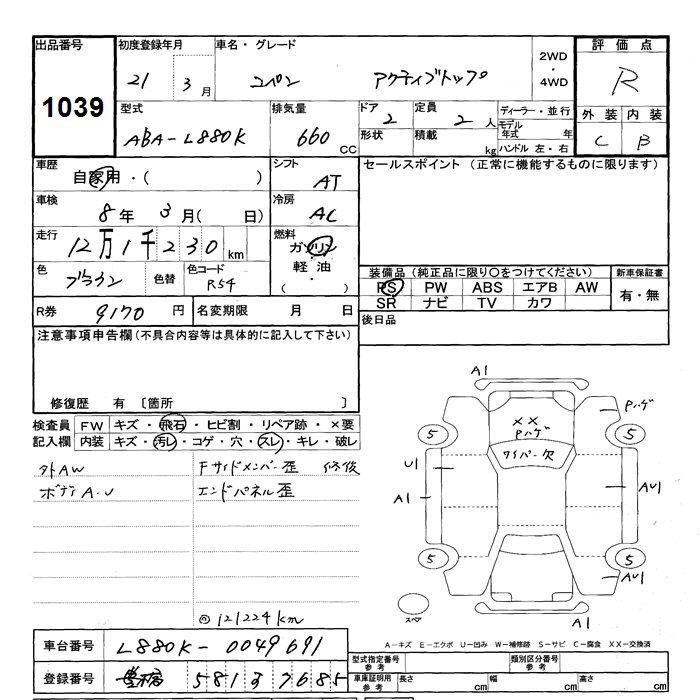 出品番号 初度登録年月 車名・グレード 2WD・4WD 評価点
1039 21 3月 コペン アクティブトップ R
型式 排気量 ドア 2 定員 2人 ディーラー・並行 外装 内装
ABA-L880K 660 CC 形状 積載 kg モデル年式 年 ハンドル 左・右 C B
車歴 自家用・( ) シフト AT セールスポイント (正常に機能するものに限ります)
車検 8年 3月( 日) 冷房 AC
走行 12万1千230km 燃料 ガソリン 軽油・( )
色 ブラウン 色替 色コード R54 装備品 (純正品に限り○をつけてください) 新車保証書
PS PW ABS エアB AW 有・無
SR ナビ TV カワ
R券 9170円 名変期限 月 日 後日品
注意事項申告欄(不具合内容等は具体的に記入して下さい)
修復歴 有 〔箇所 〕
検査員 FW キズ・飛石・ヒビ割・リペア跡・×要
記入欄 内装 キズ・汚レ・コゲ・穴・スレ・キレ・破レ
外AW Fサイドメンバー歪 修復
ボディA.U エンドパネル歪
◎121224km
A1
Pハゲ
XX
Pハゲ
5 5
ワイパー欠
U1
A1 AU1
5 5
AU1
スペア A1
A-キズ E-エクボ U-凹み W-補修跡 S-サビ C-腐食 XX-交換済
車台番号 L880K-0049691 型式指定番号 参考 類別区分番号 参考
登録番号 豊橋 581 7685 車庫証明用 参考 長さ cm 幅 cm 高さ cm